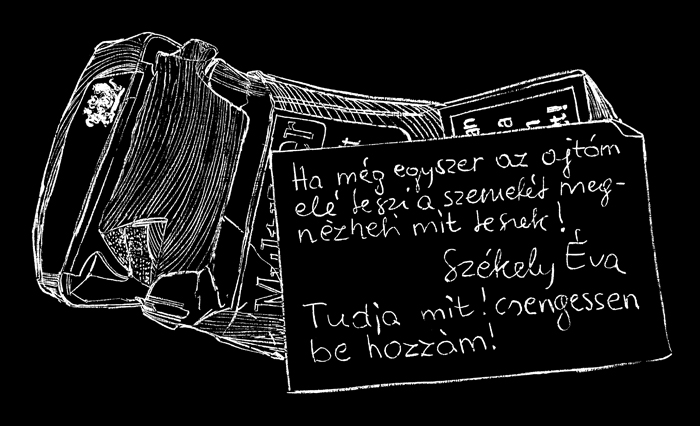 Ha még egyszer az ajtóm
elé teszi a szemetét meg-
nézheti mit teszek!
Székely Éva
Tudja mit! csengessen
be hozzàm!